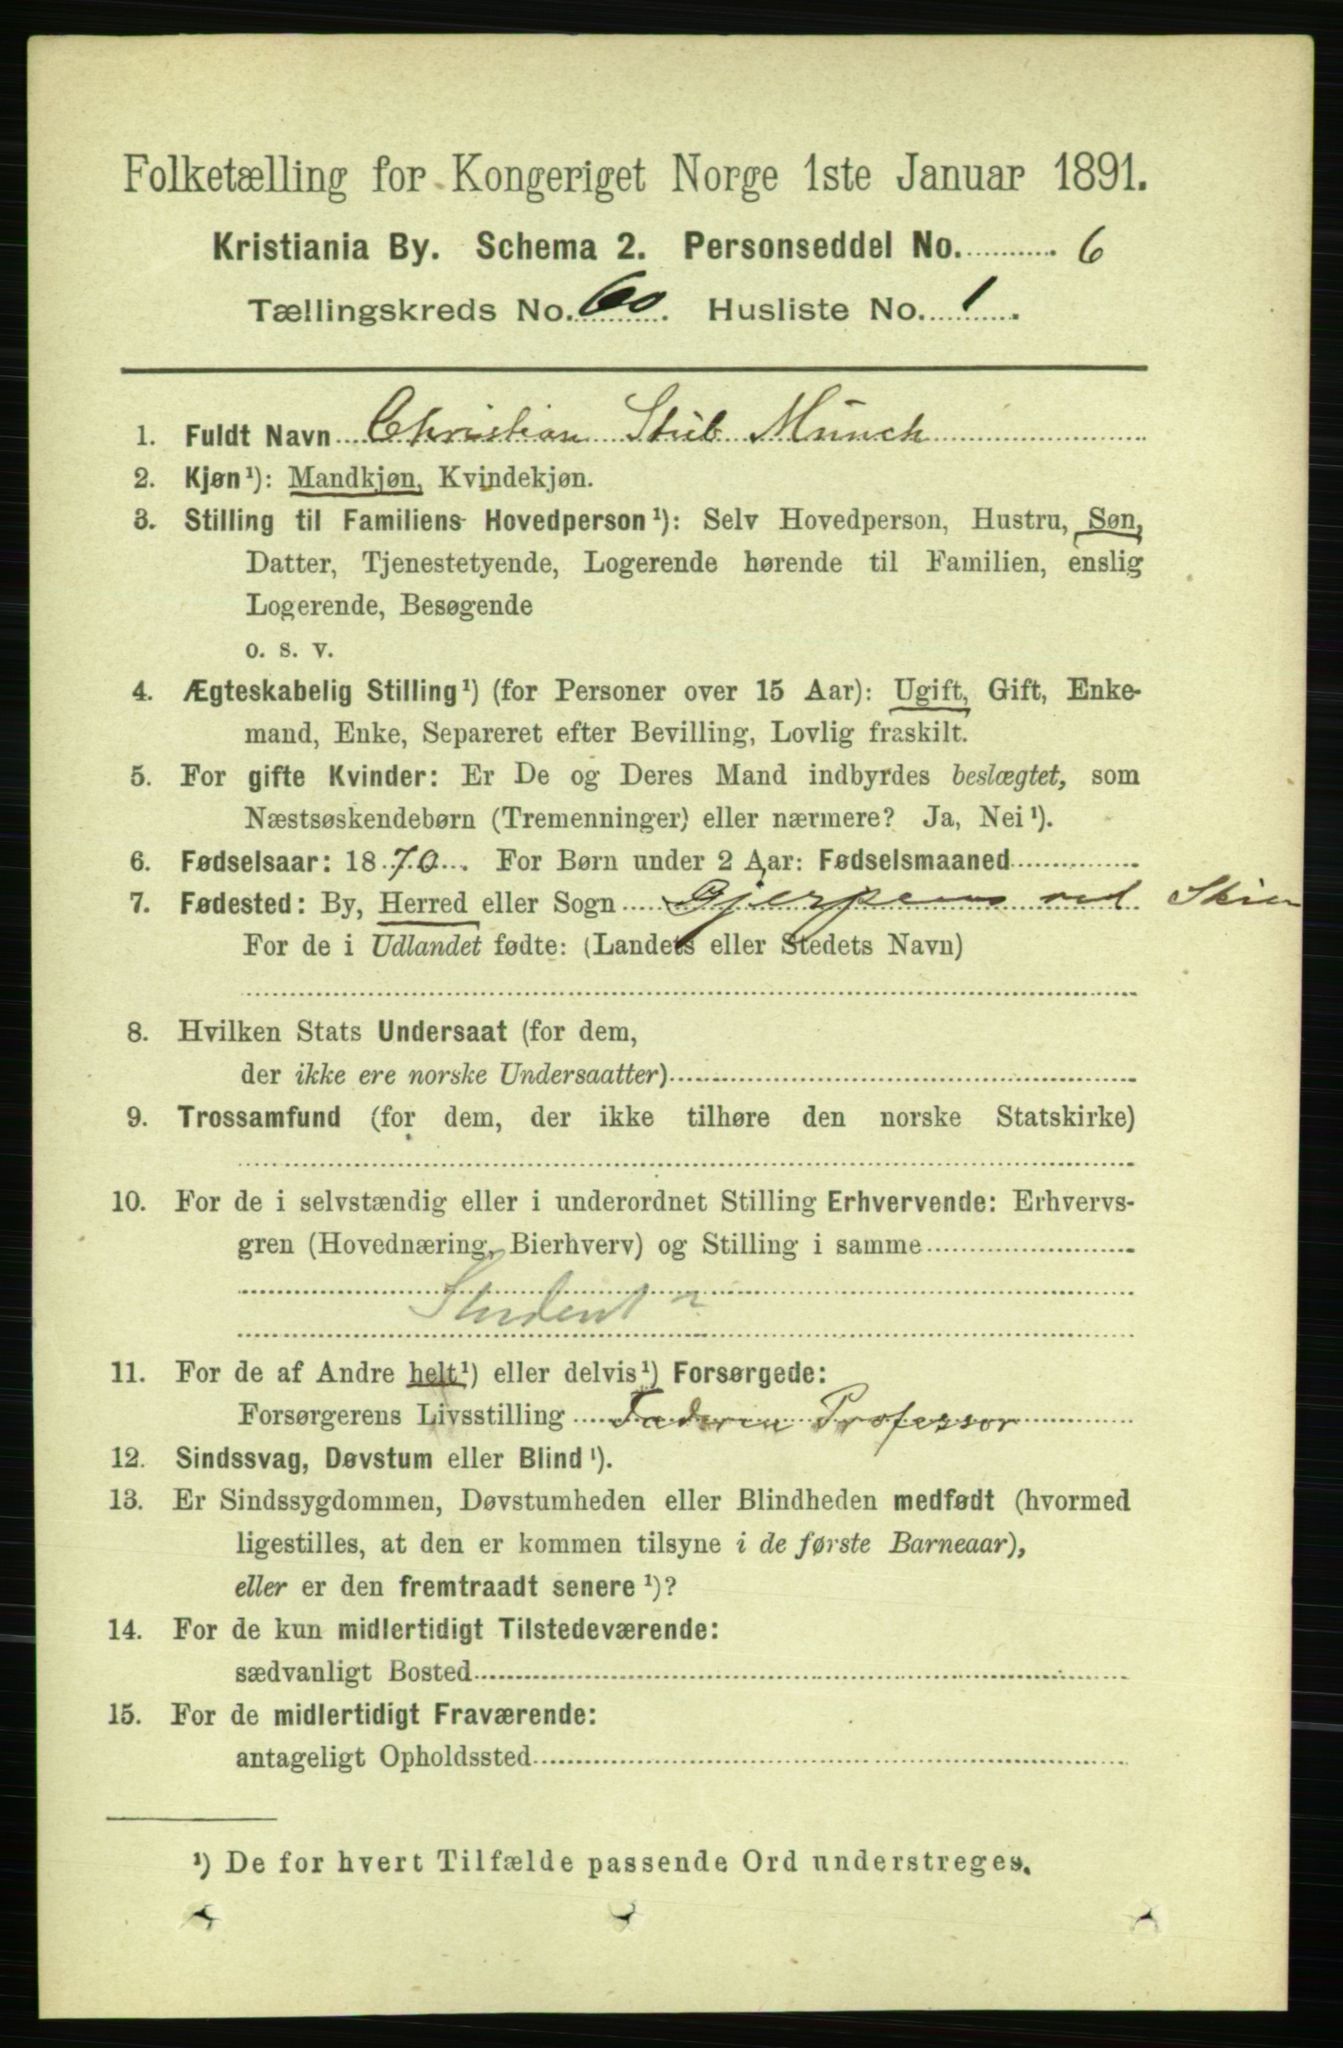 Folketælling for Kongeriget Norge 1ste Januar 1891.
Kristiania By. Schema 2. Personseddel No. 6
Tællingskreds No. 60. Husliste No. 1.
1. Fuldt Navn Christian Stub Münch
2. Kjøn¹): Mandkjøn, Kvindekjøn.
3. Stilling til Familiens Hovedperson¹): Selv Hovedperson, Hustru, Søn,
Datter, Tjenestetyende, Logerende hørende til Familien, enslig
Logerende, Besøgende
o. s. v.
4. Ægteskabelig Stilling¹) (for Personer over 15 Aar): Ugift, Gift, Enke-
mand, Enke, Separeret efter Bevilling, Lovlig fraskilt.
5. For gifte Kvinder: Er De og Deres Mand indbyrdes beslægtet, som
Næstsøskendebørn (Tremenninger) eller nærmere? Ja, Nei¹).
6. Fødselsaar: 1870. For Børn under 2 Aar: Fødselsmaaned
7. Fødested: By, Herred eller Sogn Gjerpen ved Skien
For de i Udlandet fødte: (Landets eller Stedets Navn)
8. Hvilken Stats Undersaat (for dem,
der ikke ere norske Undersaatter)
9. Trossamfund (for dem, der ikke tilhøre den norske Statskirke)
10. For de i selvstændig eller i underordnet Stilling Erhvervende: Erhvervs-
gren (Hovednæring, Bierhverv) og Stilling i samme
Student ?
11. For de af Andre helt¹) eller delvis¹) Forsørgede:
Forsørgerens Livsstilling Faderen Professor
12. Sindssvag, Døvstum eller Blind¹).
13. Er Sindssygdommen, Døvstumheden eller Blindheden medfødt (hvormed
ligestilles, at den er kommen tilsyne i de første Barneaar),
eller er den fremtraadt senere¹)?
14. For de kun midlertidigt Tilstedeværende:
sædvanligt Bosted
15. For de midlertidigt Fraværende:
antageligt Opholdssted
¹) De for hvert Tilfælde passende Ord understreges.